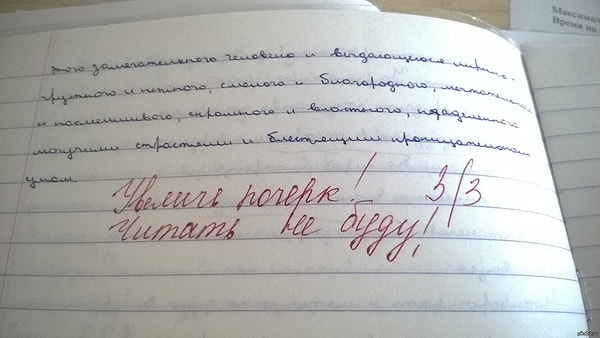 Максимал
Время на
этого замечательного человека и выдающегося лирика -
грустного и нежного, смелого и благородного, мечтательного
и насмешливого, скромного и властного, наделённого
могучими страстями и блестящим проницательным
умом
Увеличь почерк! 3/3
Читать не буду!